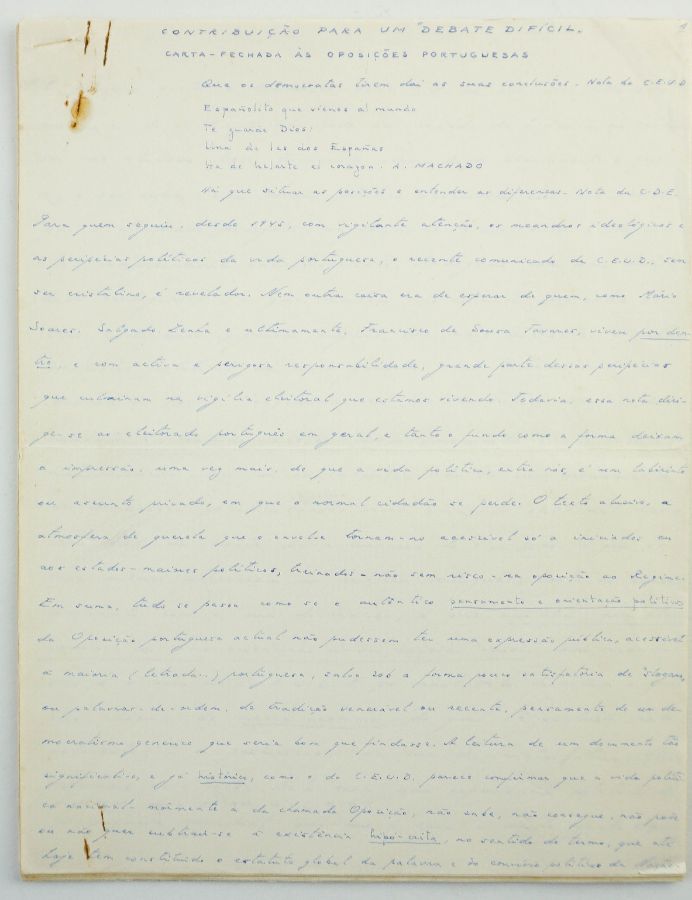 CONTRIBUIÇÃO PARA UM "DEBATE DIFÍCIL.
CARTA-FECHADA ÀS OPOSIÇÕES PORTUGUESAS
Que os democratas tirem daí as suas conclusões. Nota da C.E.U.D
Españolito que vienes al mundo
Te guarde Dios!
Una de las dos Españas
Ha de helarte el corazon. A. MACHADO
Há que situar as posições e entender as diferenças. Nota da C.D.E.
Para quem seguiu, desde 1945, com vigilante atenção, os meandros ideológicos e
as peripécias políticas da vida portuguesa, o recente comunicado da C.E.U.D., sem
ser cristalino, é revelador. Nem outra coisa era de esperar de quem, como Mário
Soares, Salgado Zenha e ultimamente, Francisco de Sousa Tavares, viveu por den-
tro, e com activa e perigosa responsabilidade, grande parte dessas peripécias
que culminam na vigília eleitoral que estamos vivendo. Todavia, essa nota diri-
ge-se ao eleitorado português em geral, e tanto o fundo como a forma deixam
a impressão, uma vez mais, de que a vida política, entre nós, é um labirinto
ou assunto privado, em que o normal cidadão se perde. O texto alusivo, a
atmosfera de querela que o envolve tornam-no acessível só a iniciados ou
aos estados-maiores políticos, treinados - não sem risco - na oposição ao Regime.
Em suma, tudo se passa como se o autêntico pensamento e orientação política
da Oposição portuguesa actual não pudessem ter uma expressão pública, acessível
à maioria (letrada...) portuguesa, salvo sob a forma pouco satisfatória de "slogans,
ou palavras-de-ordem, de tradição venerável ou recente, pensamento de um de-
mocratismo genérico que seria bom que findasse. A leitura de um documento tão
significativo, e já histórico, como o da C.E.U.D. parece confirmar que a vida políti-
ca nacional - mormente a da chamada Oposição, não sabe, não consegue, não pode
ou não quer subtrair-se à existência hipó-crita, no sentido do termo, que até
hoje tem constituído o estatuto global da palavra e do convívio político da Nação.